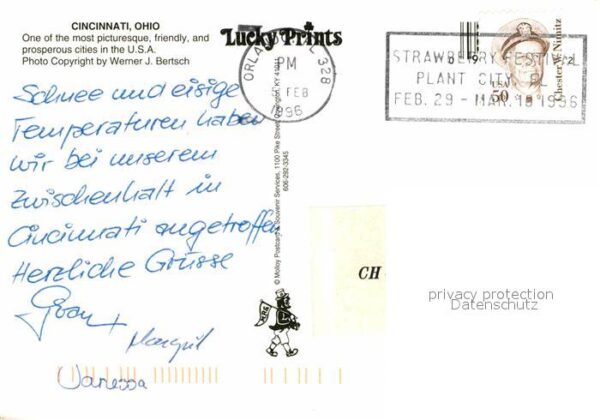 CINCINNATI, OHIO
One of the most picturesque, friendly, and
prosperous cities in the U.S.A.
Photo Copyright by Werner J. Bertsch
Lucky Prints
Schnee und eisige
Temperaturen haben
wir bei unserem
Zwischenhalt in
Cincinnati angetroffen
Herzliche Grüsse
Margrit
Vanessa
© Molloy Postcard & Souvenir Services, 1100 Pike Street Covington, KY 41011
606-292-3345
ORLANDO FL 328
PM
FEB
1996
STRAWBERRY FESTIVAL
PLANT CITY, FL
FEB. 29 - MAR. 10 1996
Chester W. Nimitz
USA
50
CH
privacy protection
Datenschutz